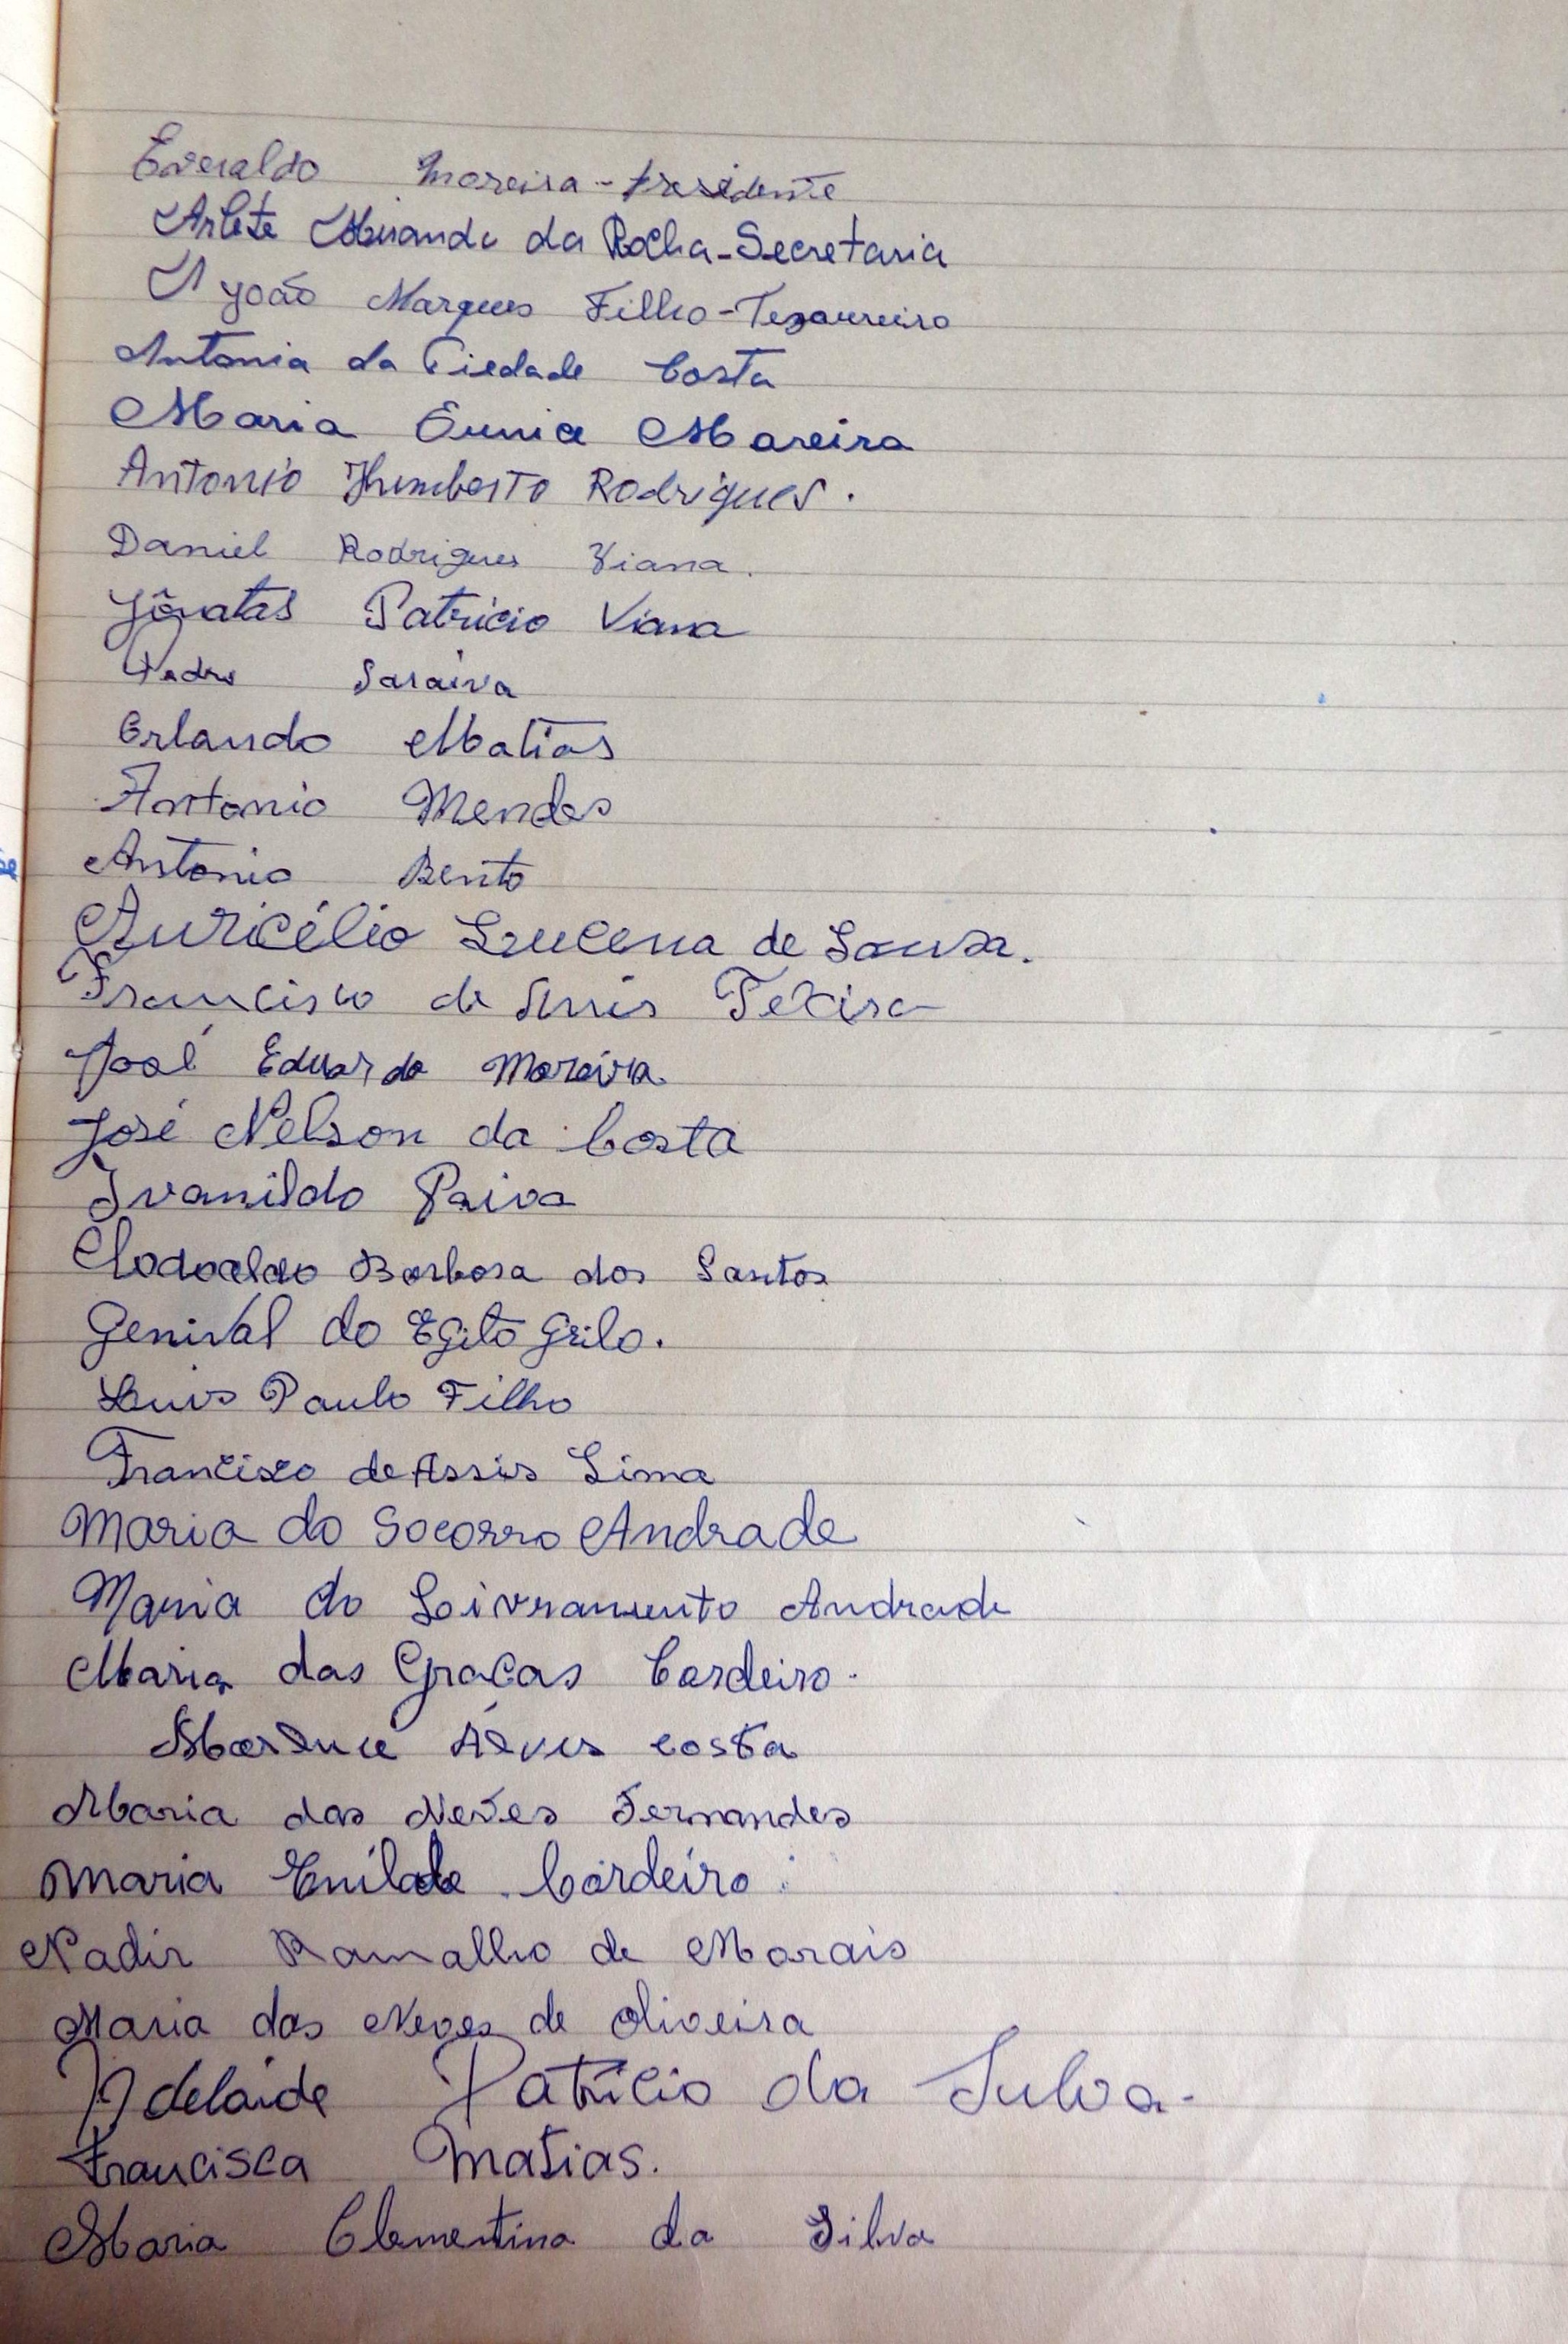 Everaldo Moreira - presidente
Arlete Miranda da Rocha - Secretaria
João Marques Filho - Tezoureiro
Antonia da Piedade Costa
Maria Eunice Moreira
Antonio Humberto Rodrigues.
Daniel Rodrigues Viana.
Jônatas Patricio Viana
Pedro Saraiva
Orlando Matias
Antonio Mendes
Antonio Bento
Auricélio Lucena de Souza.
Francisco de Texira
José Eduardo Moreira
José Nelson da Costa
Ivanildo Paiva
Clodoaldo Barbosa dos Santos
Genival do Egito Grilo.
Luis Paulo Filho
Francisco de Assis Lima
Maria do Socorro Andrade
Maria do Loivramento Andrade
Maria das Graças Cordeiro.
Marluce Alves costa
Maria das Neves Fernandes
Maria Enilde Cordeiro
Nadir Ramalho de Morais
Maria das Neves de Oliveira
Adelaide Patricio da Silva.
Francisca Matias.
Maria Clementina da Silva